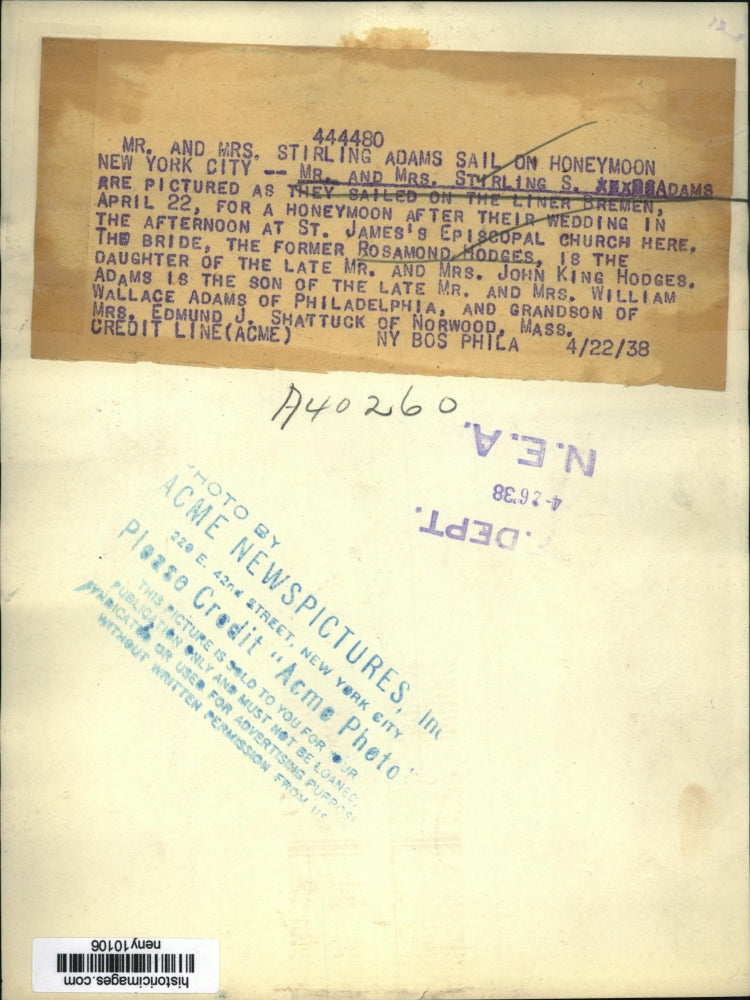 444480
MR. AND MRS. STIRLING ADAMS SAIL ON HONEYMOON
NEW YORK CITY -- MR. AND MRS. STIRLING S. XXXDSADAMS
ARE PICTURED AS THEY SAILED ON THE LINER BREMEN,
APRIL 22, FOR A HONEYMOON AFTER THEIR WEDDING IN
THE AFTERNOON AT ST. JAMES'S EPISCOPAL CHURCH HERE.
THE BRIDE, THE FORMER ROSAMOND HODGES, IS THE
DAUGHTER OF THE LATE MR. AND MRS. JOHN KING HODGES.
ADAMS IS THE SON OF THE LATE MR. AND MRS. WILLIAM
WALLACE ADAMS OF PHILADELPHIA, AND GRANDSON OF
MRS. EDMUND J. SHATTUCK OF NORWOOD, MASS.
CREDIT LINE(ACME) NY BOS PHILA 4/22/38
A40260
N.E.A.
4-26 38
DEPT.
PHOTO BY
ACME NEWSPICTURES, Inc
220 E. 42nd STREET, NEW YORK CITY
Please Credit "Acme Photo"
THIS PICTURE IS SOLD TO YOU FOR YOUR
PUBLICATION ONLY AND MUST NOT BE LOANED,
SYNDICATED OR USED FOR ADVERTISING PURPOSE
WITHOUT WRITTEN PERMISSION FROM US
historicimages.com
neny10106